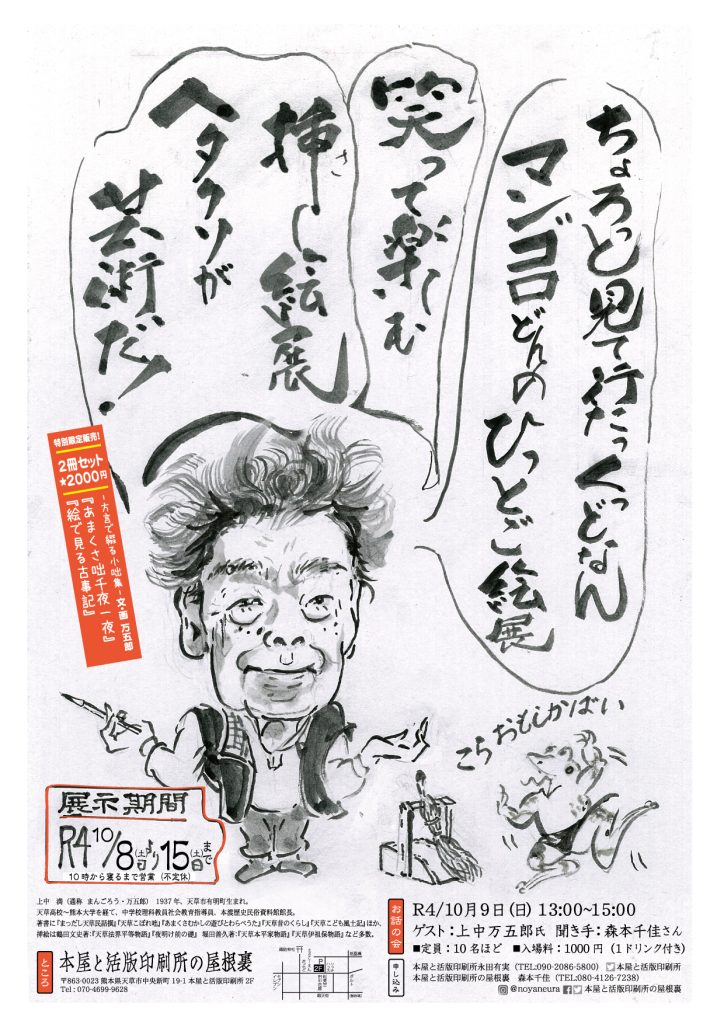 ちょろっと見て行たっくっどなん
マンゴロどんの
ひっとご絵展
笑って楽しむ
挿し絵展
さ
ヘタクソが
芸術だ!
特別限定販売!
2冊セット
★2000円
-方言で綴る小咄集-文・画 万五郎
『あまくさ咄千夜一夜』
『絵で見る古事記』
こらおもしかばい
展示期間
R4 10/8(土)日より15(土)日まで
10時から寝るまで営業(不定休)
上中 満(通称 まんごろう・万五郎) 1937年、天草市有明町生まれ。
天草高校~熊本大学を経て、中学校理科教員社会教育指導員、本渡歴史民俗資料館館長。
著書に『まっだし天草民話摘』『天草こばれ咄』『あまくさむかしの遊びとわらべうた』『天草昔のくらし』『天草こども風土記』ほか、
挿絵は鶴田文史著:『天草法界平等物語』『夜明け前の礎』 堀田善久著:『天草本平家物語』『天草伊曽保物語』など多数。
ところ
本屋と活版印刷所の屋根裏
〒863-0023 熊本県天草市中央新町 19-1 本屋と活版印刷所 2F
Tel : 070-4699-9628
P
2F
お話の会
R4/10月9日(日) 13:00~15:00
ゲスト:上中万五郎氏 聞き手:森本千佳さん
■定員:10名ほど ■入場料:1000円(1ドリンク付き)
申し込み
本屋と活版印刷所永田有実(TEL:090-2086-5800) 本屋と活版印刷所
本屋と活版印刷所の屋根裏 森本千佳(TEL:080-4126-7238)
@noyaneura 本屋と活版印刷所の屋根裏